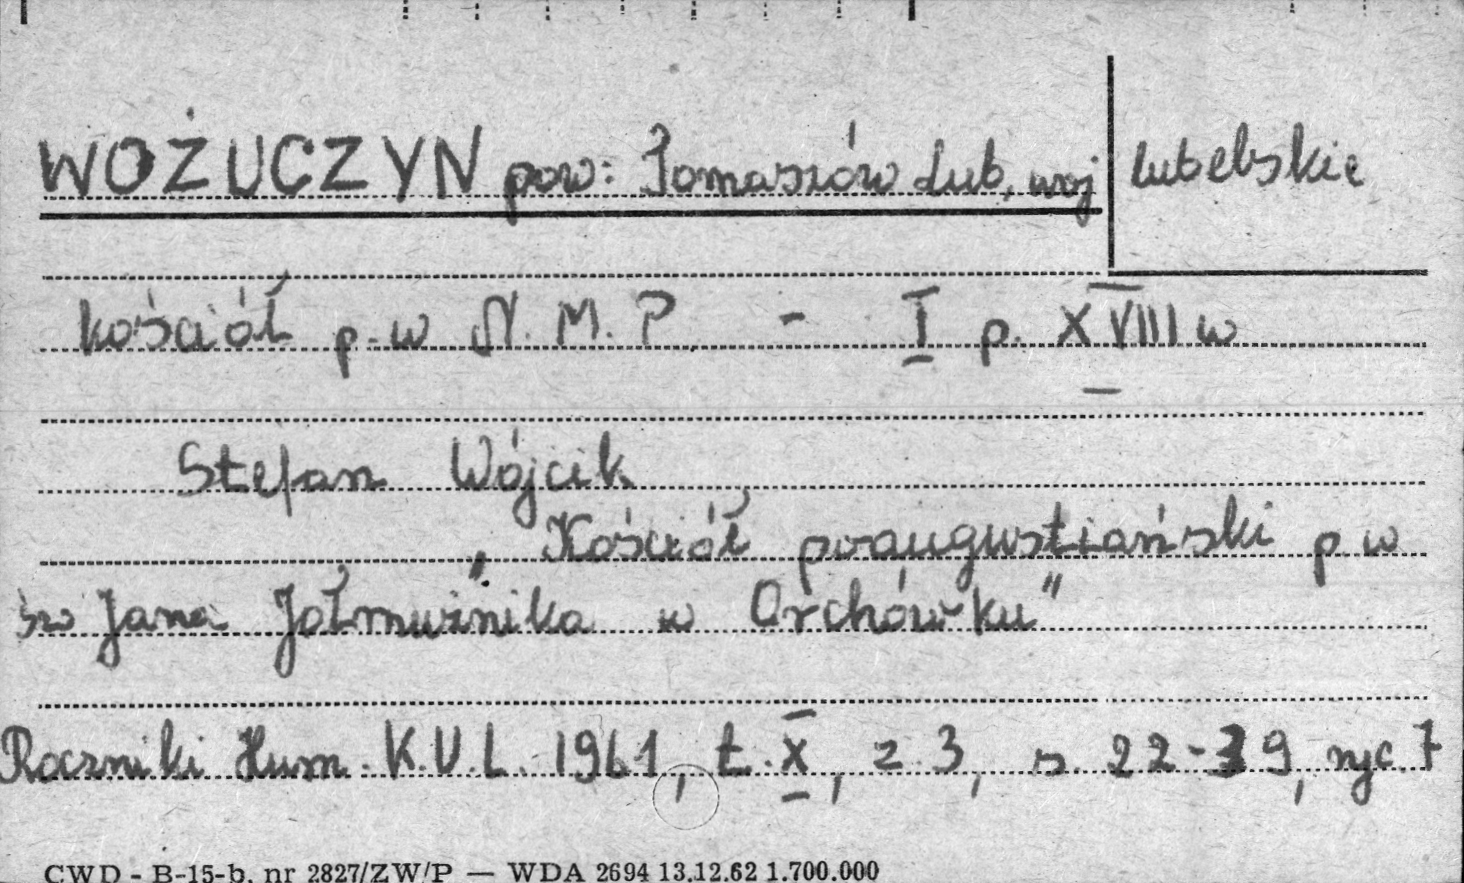 WOŻUCZYN pow: Tomaszów Lub, woj lubelskie
kościół p.w N. M. P - I p. XVIII w
Stefan Wójcik
„Kościół poaugustiański p.w
św Jana Jałmużnika w Orchówku"
Roczniki Hum. K.U.L. 1961, t. X, z 3, s. 22-39, ryc. 7
CWD - B-15-b. nr 2827/ZW/P — WDA 2694 13.12.62 1.700.000